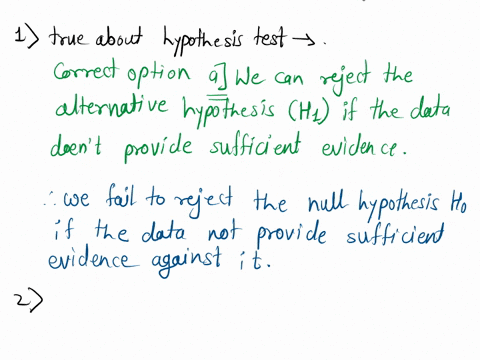 1) true about hypothesis test →.
Correct option a] We can reject the
alternative hypothesis (H1) if the data
doen't provide sufficient evidence.
∴ we fail to reject the null hypothesis H0
if the data not provide sufficient
evidence against it.
2)